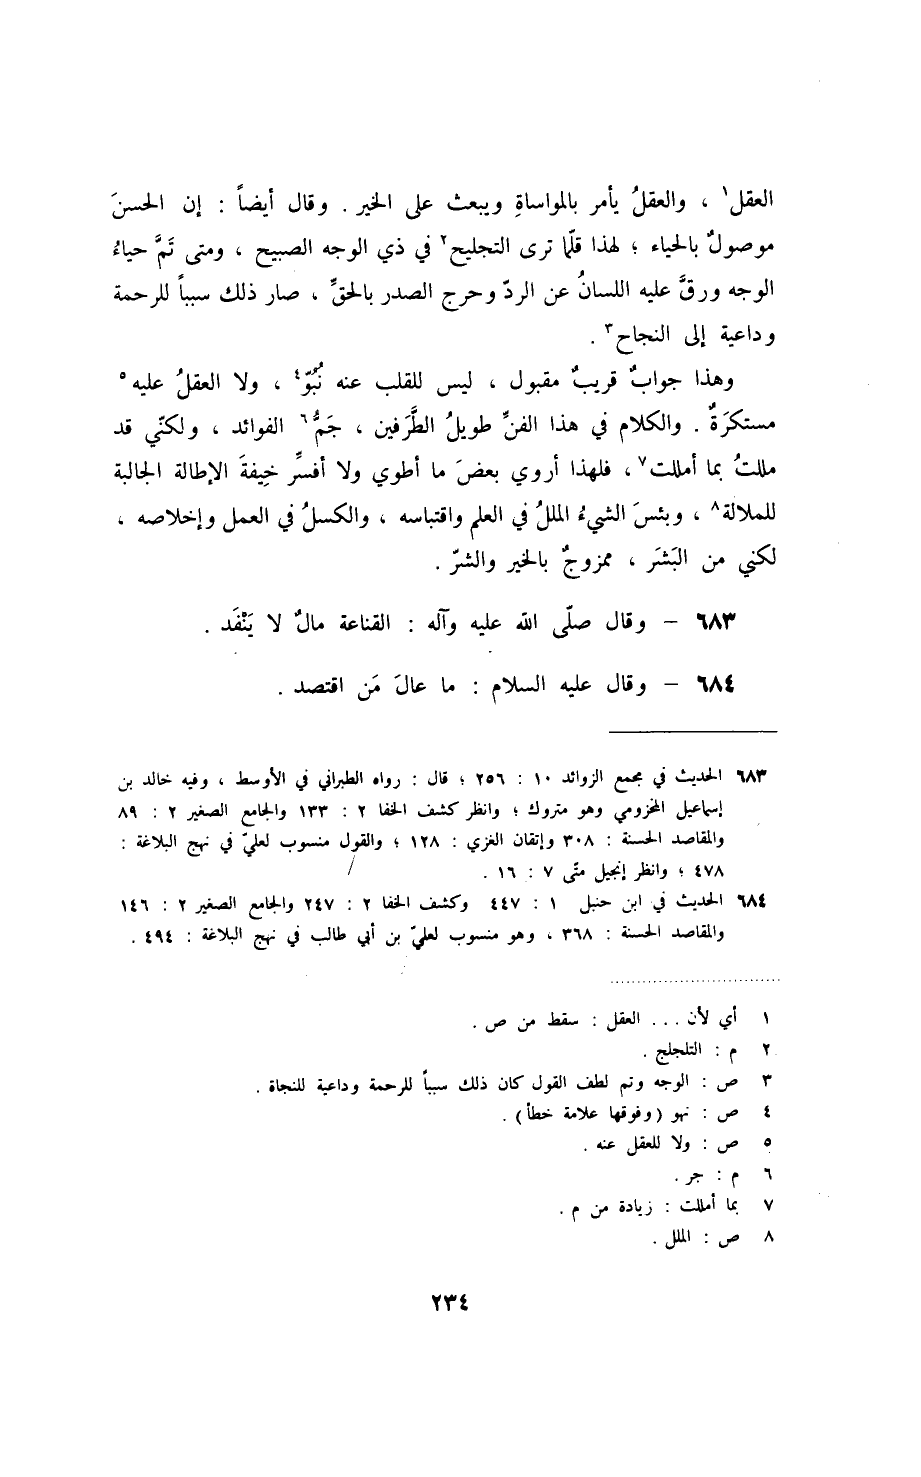 العقل١ ، والعقلُ يأمر بالمواساةِ ويبعث على الخير . وقال أيضاً : إن الحسنَ
موصولٌ بالحياء ؛ لهذا قلَّما ترى التجليح٢ في ذي الوجه الصبيح ، ومتى تَمَّ حياءُ
الوجه ورقَّ عليه اللسانُ عن الردّ وحرج الصدر بالحقِّ ، صار ذلك سبباً للرحمة
وداعية إلى النجاح٣ .
وهذا جوابٌ قريبٌ مقبول ، ليس للقلب عنه نُبُوّ٤ ، ولا العقلُ عليه٥
مستكرَةٌ . والكلام في هذا الفنِّ طويلُ الطَّرَفين ، جَمُّ٦ الفوائد ، ولكنّي قد
مللتُ بما أمللت٧ ، فلهذا أروي بعضَ ما أطوي ولا أفسِّر خِيفةَ الإطالة الجالبة
للملالة٨ ، وبئسَ الشيءُ المللُ في العلم واقتباسه ، والكسلُ في العمل وإخلاصه ،
لكني من البَشَر ، ممزوجٌ بالخير والشرّ .
٦٨٣ – وقال صلّى الله عليه وآله : القناعة مالٌ لا يَنْفَد .
٦٨٤ – وقال عليه السلام : ما عالَ مَن اقتصد .
٦٨٣ الحديث في مجمع الزوائد ١٠ : ٢٥٦ ؛ قال : رواه الطبراني في الأوسط ، وفيه خالد بن
إسماعيل المخزومي وهو متروك ؛ وانظر كشف الخفا ٢ : ١٣٣ والجامع الصغير ٢ : ٨٩
والمقاصد الحسنة : ٣٠٨ وإتقان الغزي : ١٢٨ ؛ والقول منسوب لعليّ في نهج البلاغة :
٤٧٨ ؛ وانظر إنجيل متّى ٧ : ١٦ .
٦٨٤ الحديث في ابن حنبل ١ : ٤٤٧ وكشف الخفا ٢ : ٢٤٧ والجامع الصغير ٢ : ١٤٦
والمقاصد الحسنة : ٣٦٨ ، وهو منسوب لعليّ بن أبي طالب في نهج البلاغة : ٤٩٤ .
١ أي لأن ... العقل : سقط من ص .
٢ م : التلجلج .
٣ ص : الوجه وتم لطف القول كان ذلك سبباً للرحمة وداعية للنجاة .
٤ ص : نهو (وفوقها علامة خطأ) .
٥ ص : ولا للعقل عنه .
٦ م : جر .
٧ بما أمللت : زيادة من م .
٨ ص : الملل .
٢٣٤